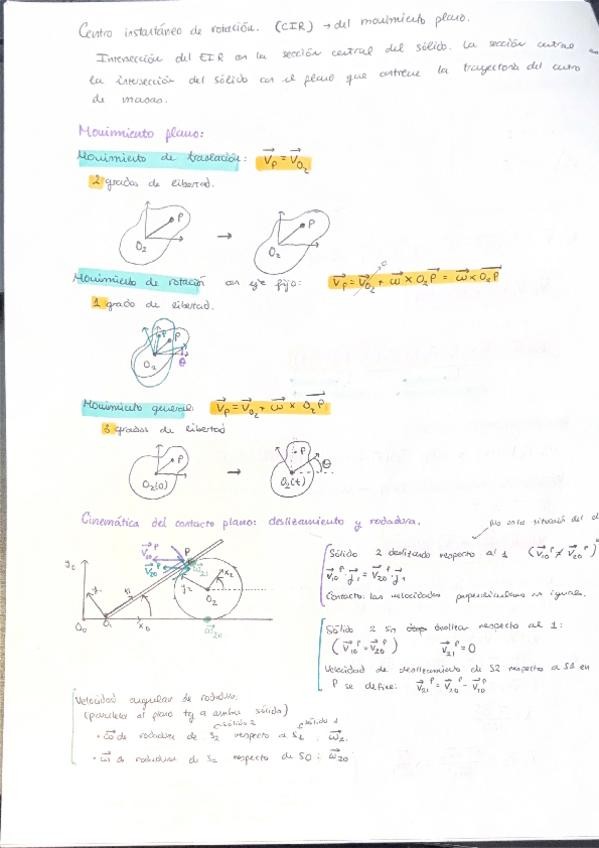 Centro instantáneo de rotación. (CIR) → del movimiento plano.
Intersección del EIR con la sección central del sólido. La sección central es
la intersección del sólido con el plano que contiene la trayectoria del centro
de masas.
Movimiento plano:
Movimiento de traslación: v⃗P = v⃗O2
2 grados de libertad.
O2 P → O2 P
Movimiento de rotación con eje fijo: v⃗P = v⃗O2 + ω⃗ × O2P = ω⃗ × O2P
1 grado de libertad.
P P
O2 θ
Movimiento general: v⃗P = v⃗O2 + ω⃗ × O2P
3 grados de libertad
P → P θ
O2(0) O2(t)
Cinemática del contacto plano: deslizamiento y rodadura.
Sólido 2 deslizando respecto al 1 (v⃗10^P ≠ v⃗20^P)
v⃗10^P · j1 = v⃗20^P · j1
Contacto: las velocidades perpendiculares son iguales.
Sólido 2 sin deslizar respecto al 1:
(v⃗10^P = v⃗20^P) v⃗21^P = 0
Velocidad de deslizamiento de S2 respecto a S1 en
P se define: v⃗21^P = v⃗20^P - v⃗10^P
Velocidad angular de rodadura:
(paralela al plano tg a ambos sólidos)
sólido 2 sólido 1
• ω⃗ de rodadura de S2 respecto a S1: ω⃗21
• ω⃗ de rodadura de S2 respecto de S0: ω⃗20